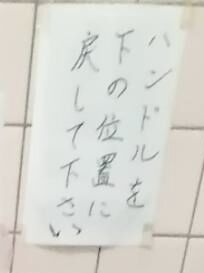 ハンドルを
下の位置に
戻して下さい